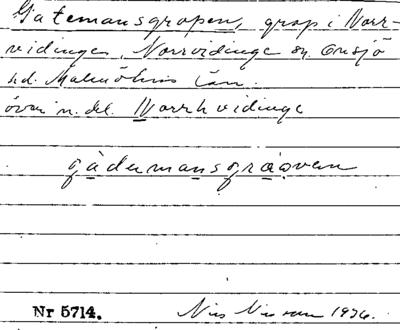 Gatemansgropen, grop i Norr-
vidinge, Norrvidinge sn. Onsjö
hd. Malmöhus län.
även n. del. Norrhvidinge
gådemansgråoven
Nr 5714. Nils Nilsson 1936.